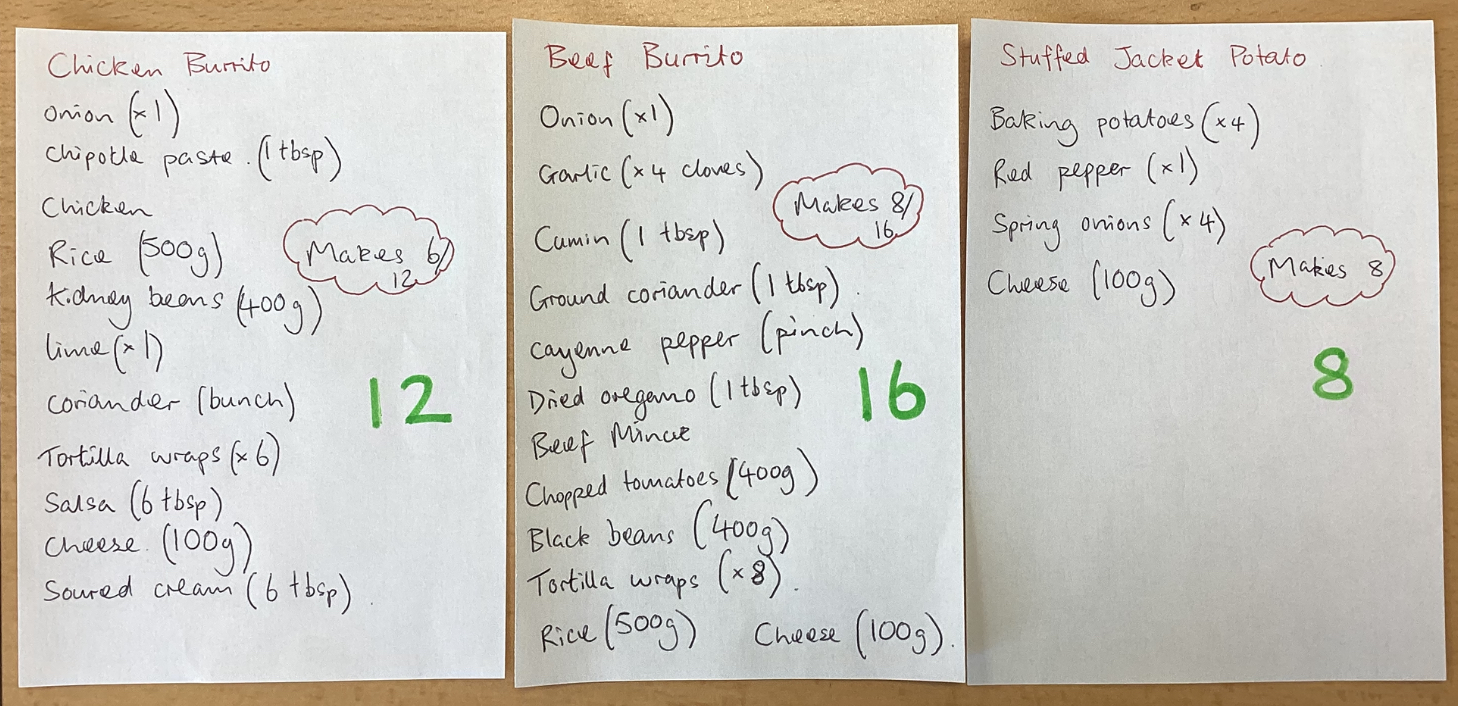 Chicken Burrito
Onion (x1)
Chipotle paste. (1 tbsp)
Chicken
Rice (500g)
Kidney beans (400g)
Lime (x1)
Coriander (bunch)
Tortilla wraps (x6)
Salsa (6 tbsp)
Cheese. (100g)
Soured cream (6 tbsp).
Makes 6/
12
12
Beef Burrito
Onion (x1)
Garlic (x4 cloves)
Cumin (1 tbsp)
Ground coriander (1 tbsp).
Cayenne pepper (pinch)
Dried oregano (1 tbsp)
Beef Mince
Chopped tomatoes (400g)
Black beans (400g)
Tortilla wraps (x8).
Rice (500g) Cheese (100g).
Makes 8/
16
16
Stuffed Jacket Potato
Baking potatoes (x4)
Red pepper (x1)
Spring onions (x4)
Cheese (100g)
Makes 8
8